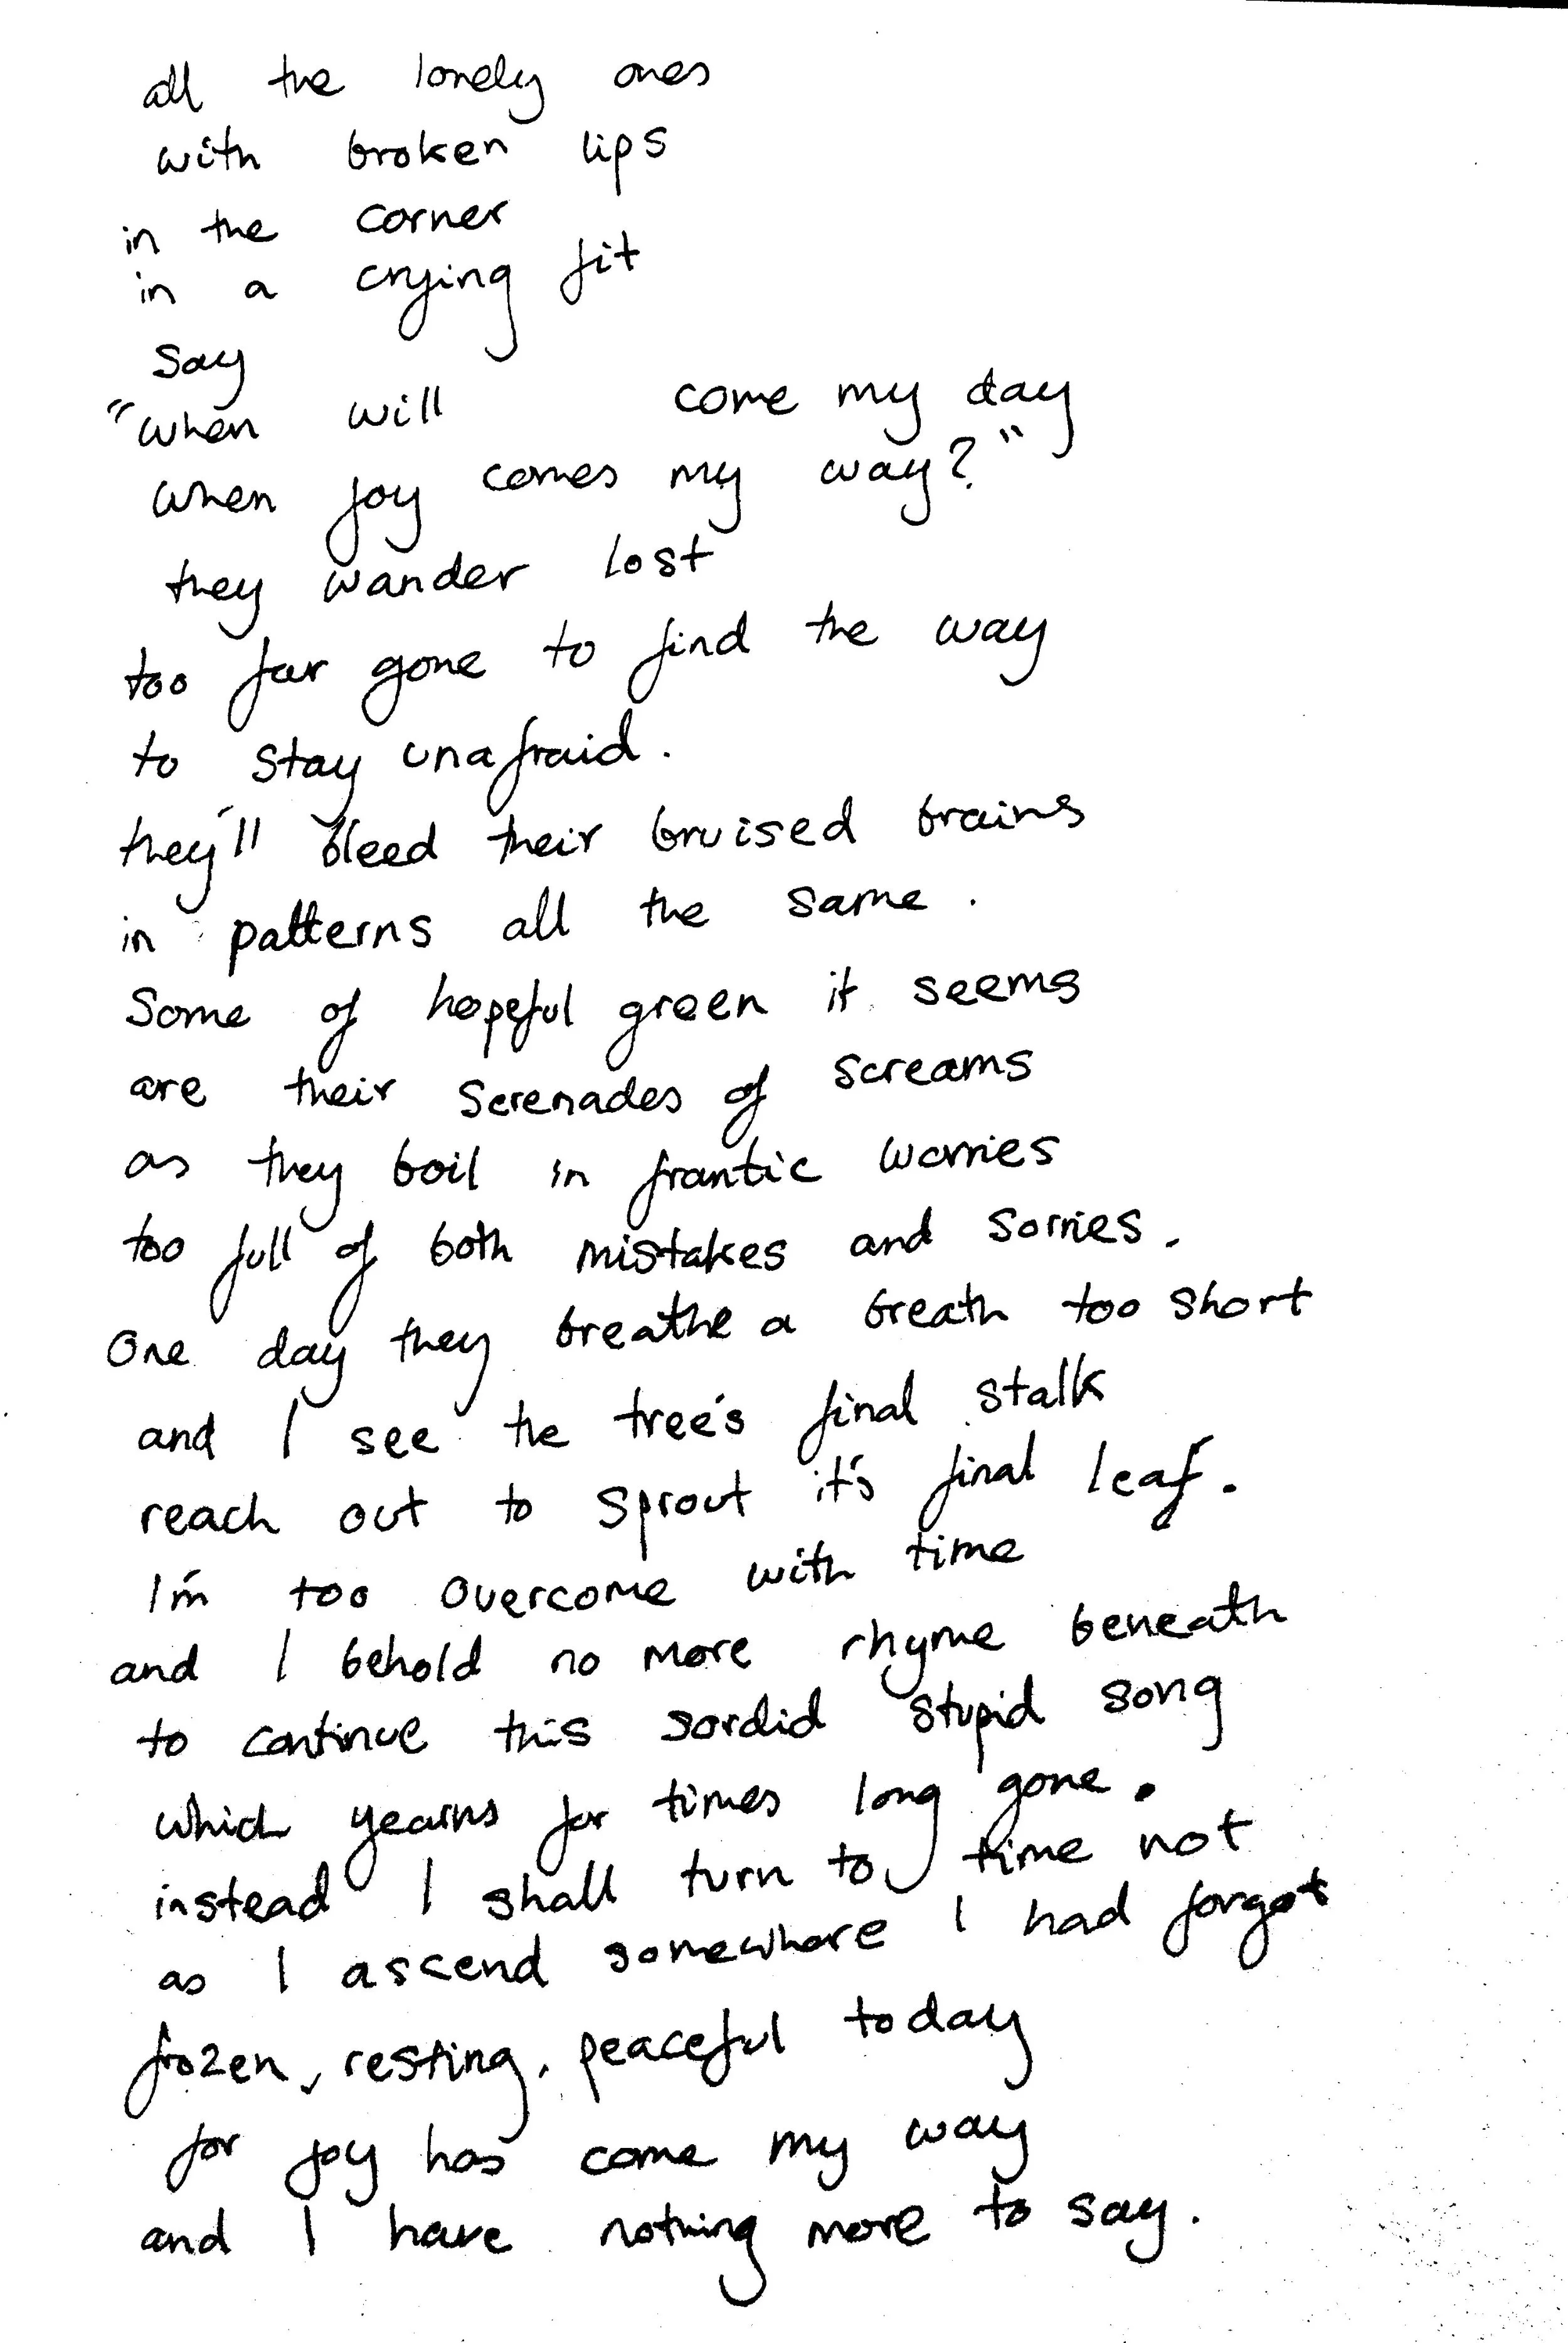 all the lonely ones
with broken lips
in the corner
in a crying fit
say
"when will come my day
when joy comes my way?"
they wander lost
too far gone to find the way
to stay unafraid.
they'll bleed their bruised brains
in patterns all the same.
Some of hopeful green it seems
are their serenades of screams
as they boil in frantic worries
too full of both mistakes and sorries.
One day they breathe a breath too short
and I see the tree's final stalk
reach out to sprout it's final leaf.
I'm too overcome with time
and I behold no more rhyme beneath
to continue this sordid stupid song
which yearns for times long gone.
instead I shall turn to time not
as I ascend somewhere I had forgot
frozen, resting, peaceful today
for joy has come my way
and I have nothing more to say.